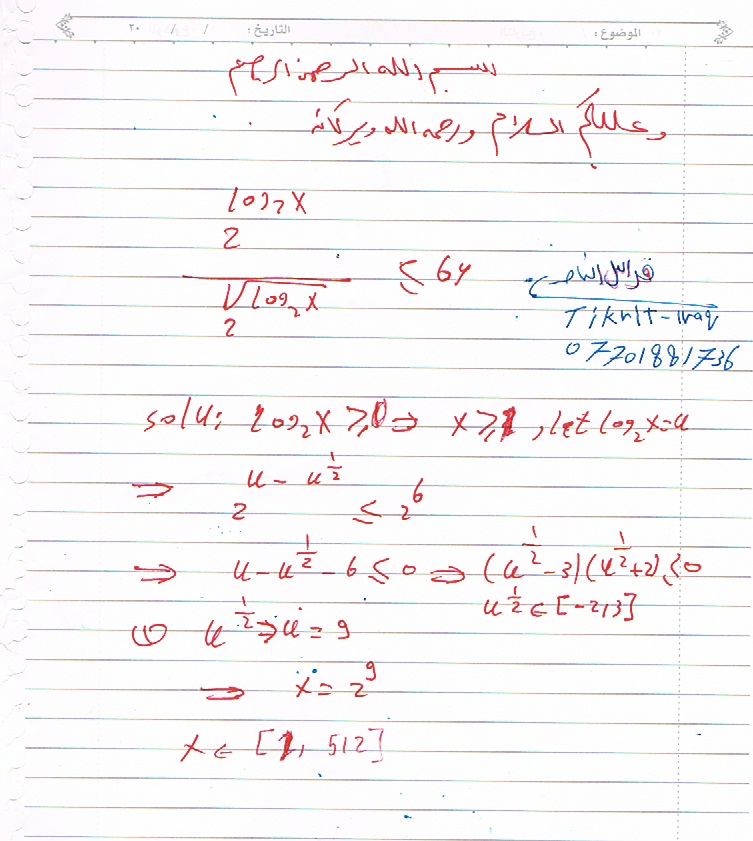 الموضوع: التاريخ: / / ٢٠
بسم الله الرحمن الرحيم
وعليكم السلام ورحمه الله وبركاته
2^(log₂x) / 2^(√log₂x) ≤ 64
Tikrit-iraq
07701881736
solu: log₂x ≥ 0 ⇒ x ≥ 1, let log₂x = u
⇒ 2^(u - u^(1/2)) ≤ 2^6
⇒ u - u^(1/2) - 6 ≤ 0 ⇒ (u^(1/2) - 3)(u^(1/2) + 2) ≤ 0
u^(1/2) ∈ [-2,3]
u^(1/2) ⇒ u = 9
⇒ x = 2^9
x ∈ [1, 512]